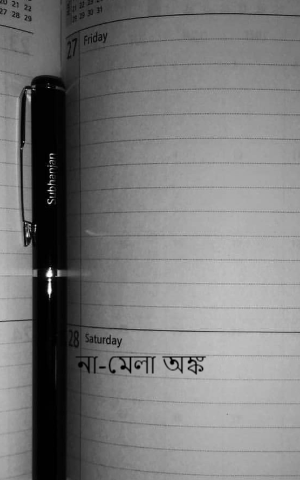 20 21 22
27 28 29
29 30 31
27 Friday
Subhanjan
28 Saturday
না-মেলা অঙ্ক